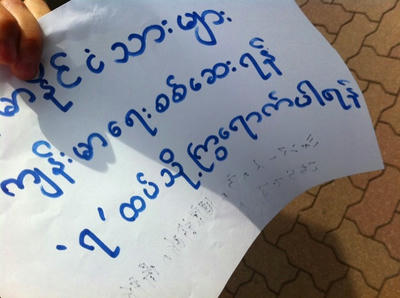 မြန်မာနိုင်ငံသားများ
ကျန်းမာရေးစစ်ဆေးရန်
'၇' ထပ်သို့ကြွရောက်ပါရန်